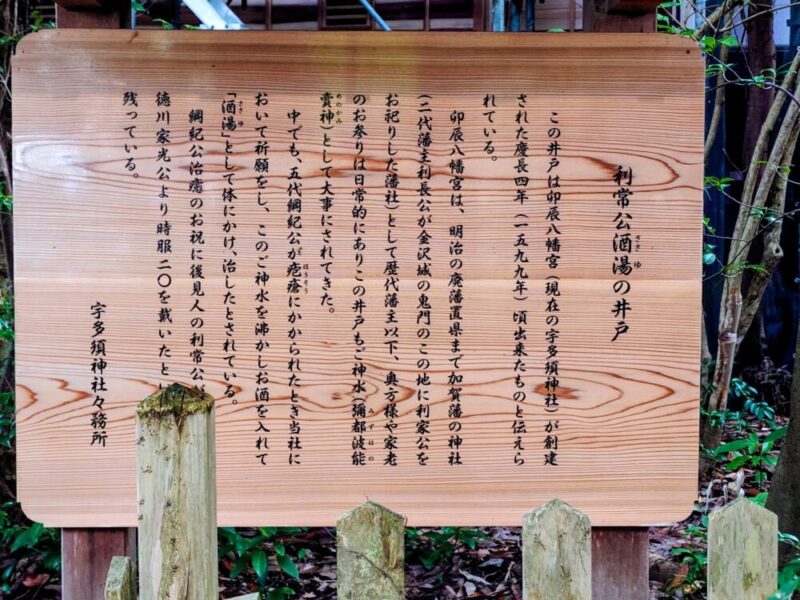 利常公酒湯の井戸
ささゆ
この井戸は卯辰八幡宮（現在の宇多須神社）が創建
された慶長四年（一五九九年）頃出来たものと伝えら
れている。
卯辰八幡宮は、明治の廃藩置県まで加賀藩の神社
（二代藩主利長公が金沢城の鬼門のこの地に利家公を
お祀りした藩社）として歴代藩主以下、奥方様や家老
のお参りは日常的にありこの井戸もご神水（彌都波能
みずはの
賣神）として大事にされてきた。
めのかみ
中でも、五代綱紀公が疱瘡にかかられたとき当社に
ほうそう
おいて祈願をし、このご神水を沸かしお酒を入れて
「酒湯」として体にかけ、治したとされている。
ささゆ
綱紀公治癒のお祝に後見人の利常公が
徳川家光公より時服二〇を戴いたと
残っている。
宇多須神社々務所